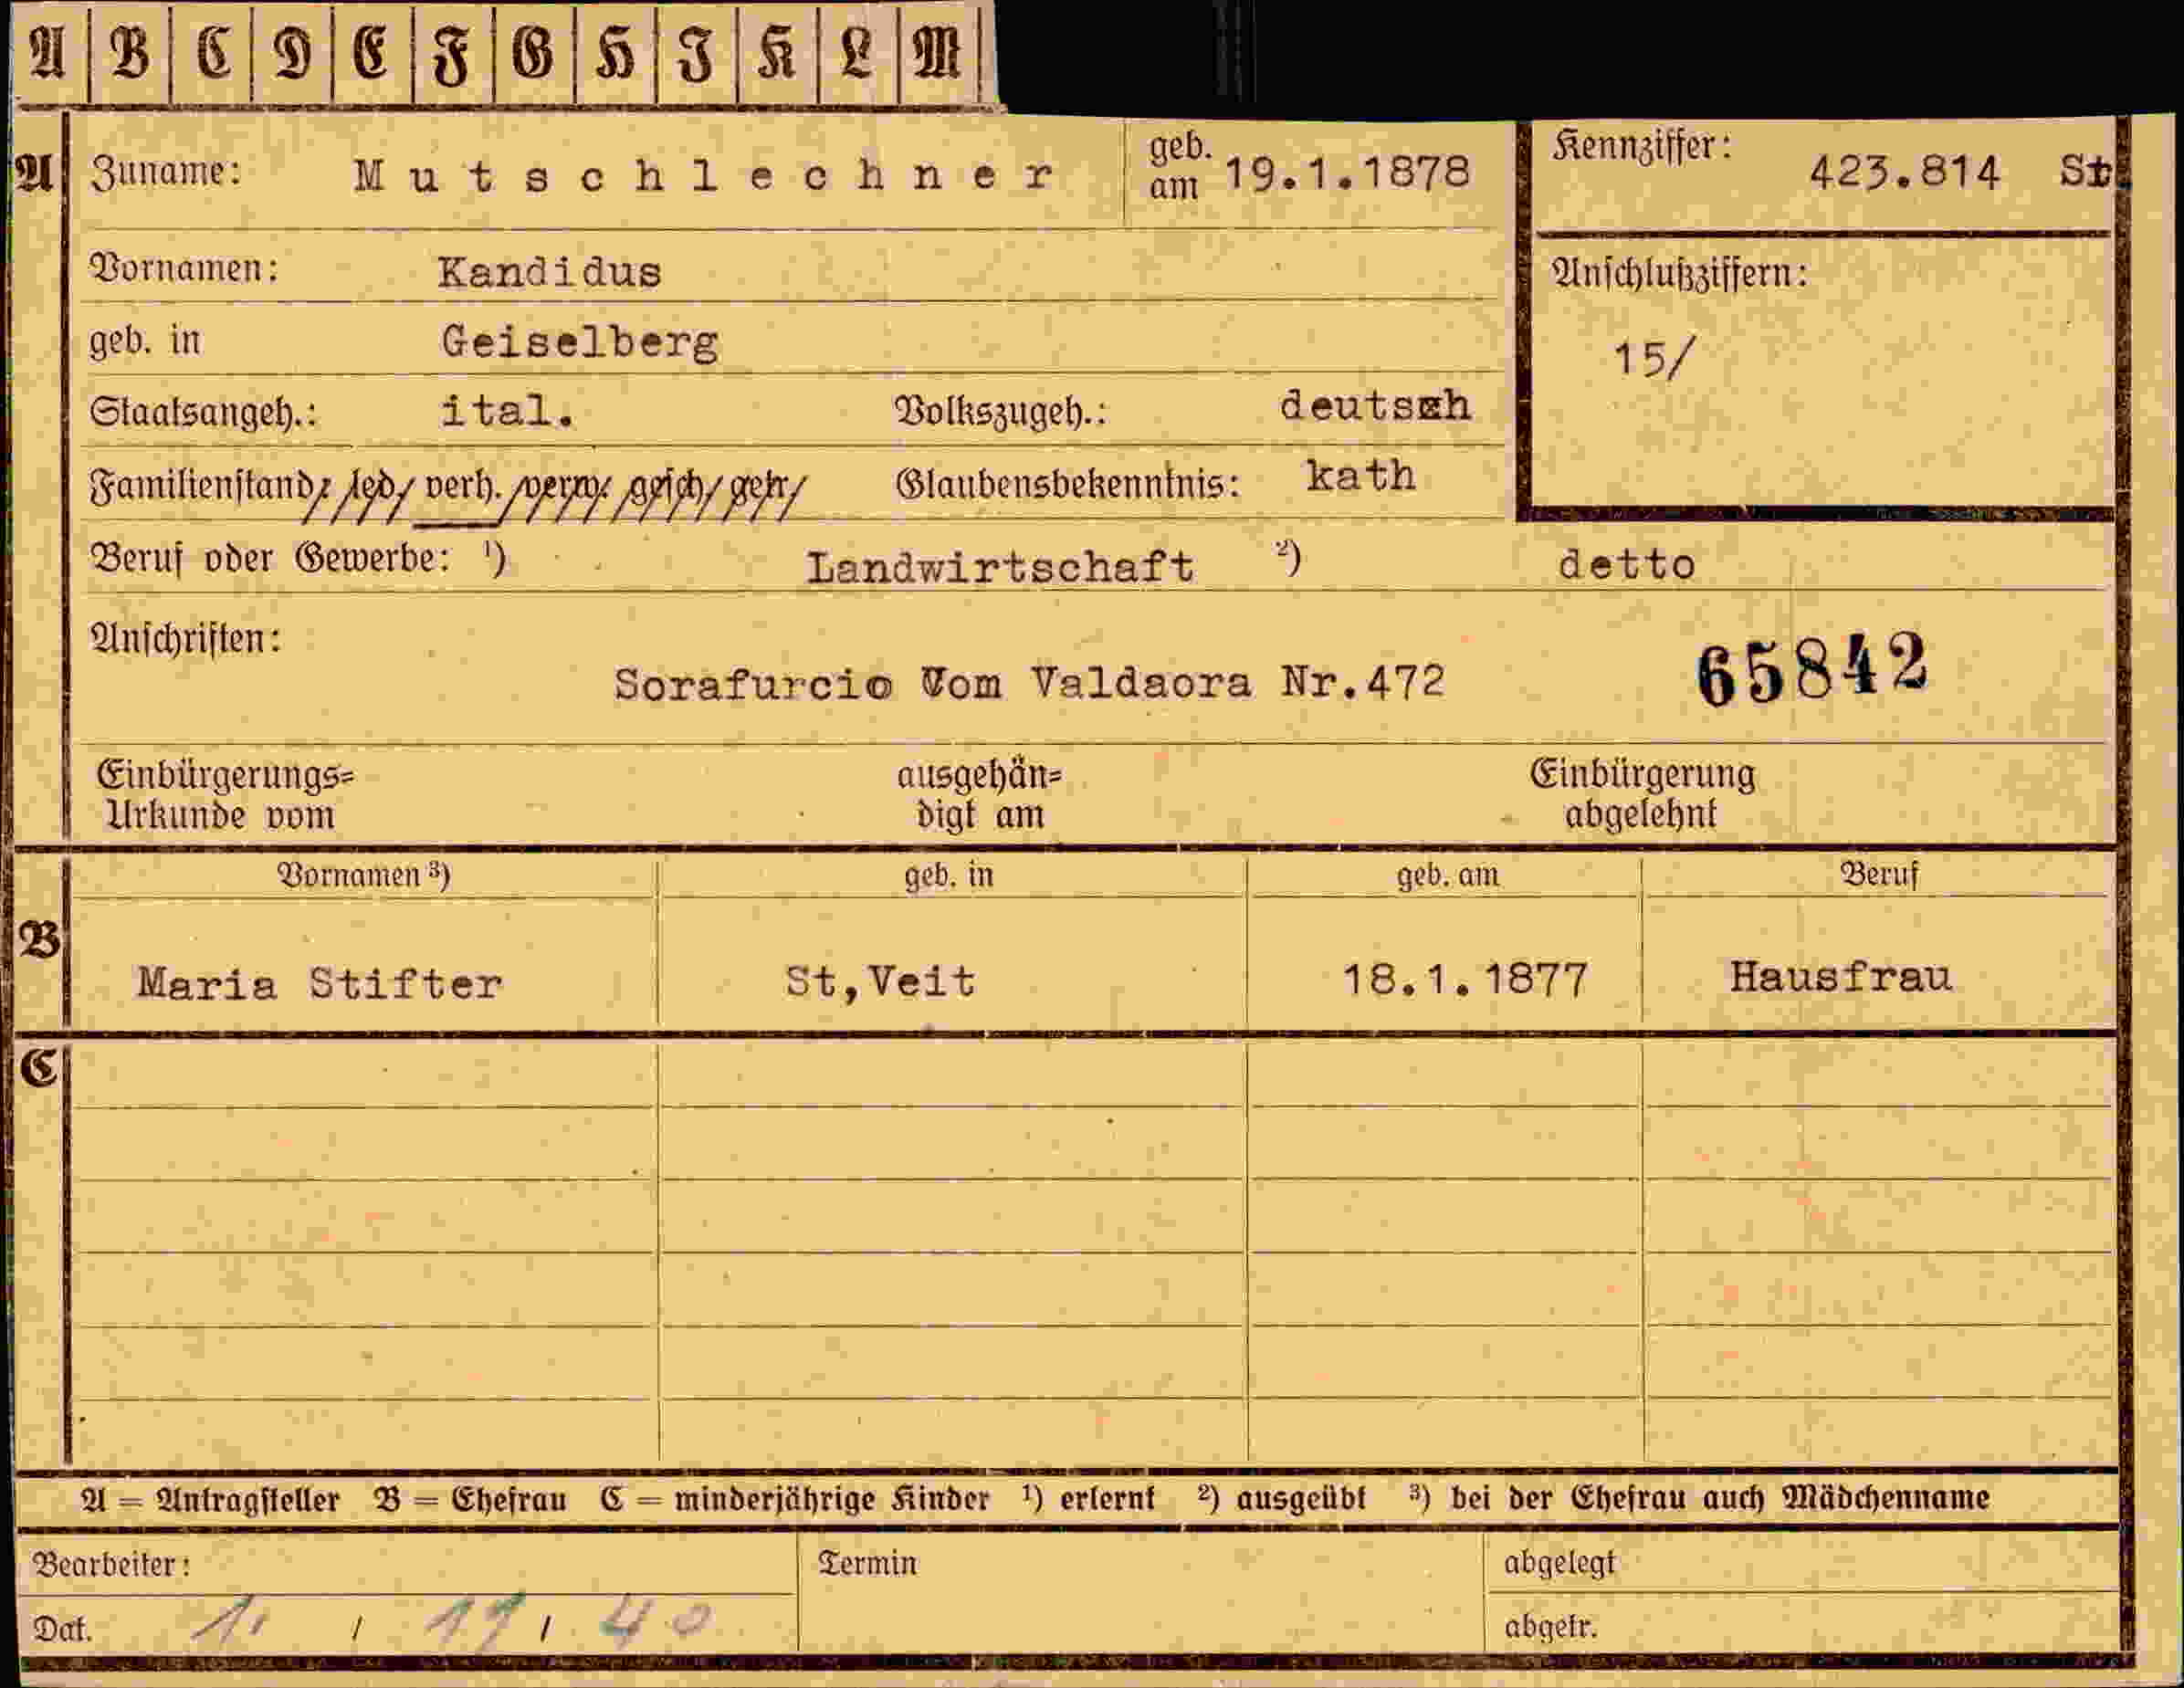 A B C D E F G H I K L M
A Zuname: Mutschlechner geb. am 19.1.1878 Kennziffer: 423.814 St
Vornamen: Kandidus Anschlußziffern:
geb. in Geiselberg 15/
Staatsangeh.: ital. Volkszugeh.: deutsch
Familienstand: led. verh. verw. gesch. getr. Glaubensbekenntnis: kath
Beruf oder Gewerbe: ¹) Landwirtschaft ²) detto
Anschriften:
Sorafurcio Vom Valdaora Nr.472 65842
Einbürgerungs= ausgehän= Einbürgerung
Urkunde vom digt am abgelehnt
Vornamen ³) geb. in geb. am Beruf
B
Maria Stifter St,Veit 18.1.1877 Hausfrau
C
A = Antragsteller B = Ehefrau C = minderjährige Kinder ¹) erlernt ²) ausgeübt ³) bei der Ehefrau auch Mädchenname
Bearbeiter: Termin abgelegt
Dat. 1. / / 40 abgetr.